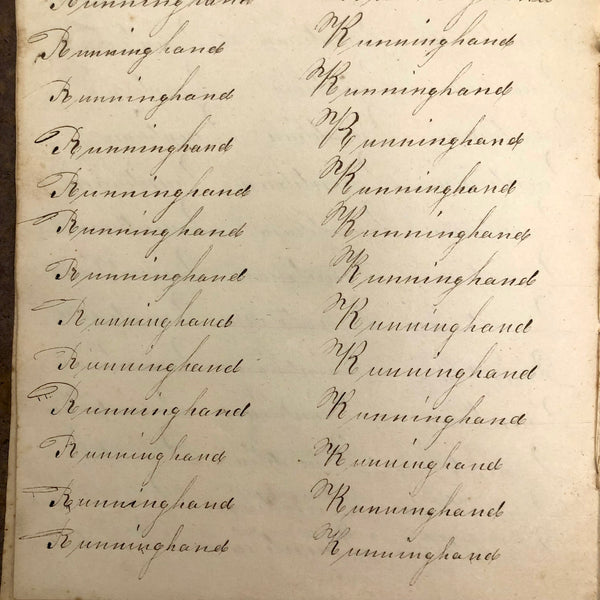 Runninghand Runninghand
Runninghand Runninghand
Runninghand Runninghand
Runninghand Runninghand
Runninghand Runninghand
Runninghand Runninghand
Runninghand Runninghand
Runninghand Runninghand
Runninghand Runninghand
Runninghand Runninghand
Runninghand Runninghand
Runninghand Runninghand